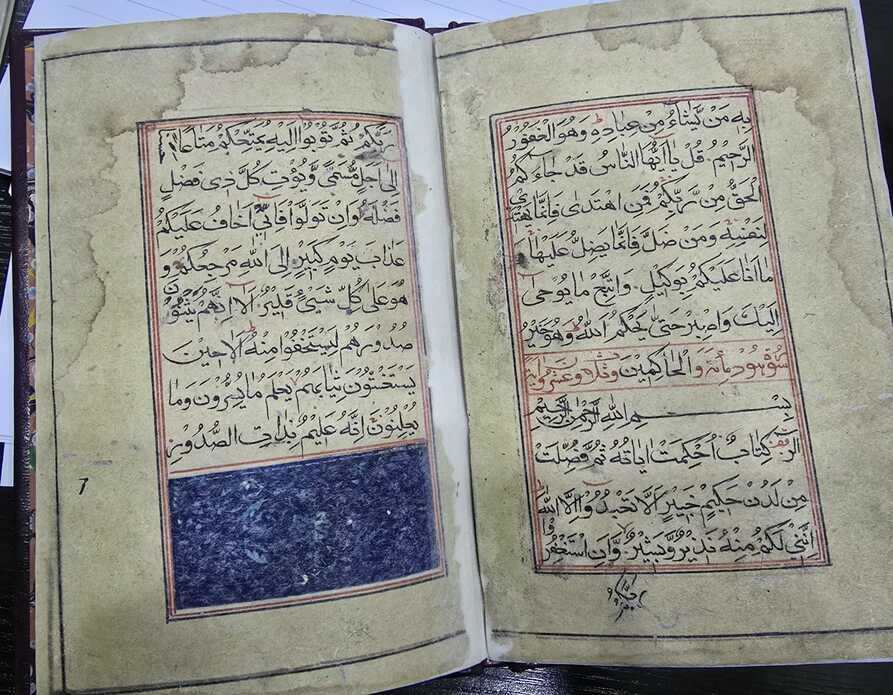 بِهِ مَنْ يَشَاءُ مِنْ عِبَادِهِ وَهُوَ الْغَفُورُ
الرَّحِيمُ قُلْ يَا أَيُّهَا النَّاسُ قَدْ جَاءَكُمُ
الْحَقُّ مِنْ رَبِّكُمْ فَمَنِ اهْتَدَىٰ فَإِنَّمَا يَهْتَدِي
لِنَفْسِهِ وَمَنْ ضَلَّ فَإِنَّمَا يَضِلُّ عَلَيْهَا
مَا أَنَا عَلَيْكُمْ بِوَكِيلٍ وَاتَّبِعْ مَا يُوحَىٰ
إِلَيْكَ وَاصْبِرْ حَتَّىٰ يَحْكُمَ اللَّهُ وَهُوَ خَيْرُ
سورة هود مائة وثلاث وعشرون آية الْحَاكِمِينَ
بِسْمِ اللَّهِ الرَّحْمَٰنِ الرَّحِيمِ
الر كِتَابٌ أُحْكِمَتْ آيَاتُهُ ثُمَّ فُصِّلَتْ
مِنْ لَدُنْ حَكِيمٍ خَبِيرٍ أَلَّا تَعْبُدُوا إِلَّا اللَّهَ
إِنَّنِي لَكُمْ مِنْهُ نَذِيرٌ وَبَشِيرٌ وَأَنِ اسْتَغْفِرُوا
رَبَّكُمْ ثُمَّ تُوبُوا إِلَيْهِ يُمَتِّعْكُمْ مَتَاعًا
إِلَىٰ أَجَلٍ مُسَمًّى وَيُؤْتِ كُلَّ ذِي فَضْلٍ
فَضْلَهُ وَإِنْ تَوَلَّوْا فَإِنِّي أَخَافُ عَلَيْكُمْ
عَذَابَ يَوْمٍ كَبِيرٍ إِلَى اللَّهِ مَرْجِعُكُمْ وَ
هُوَ عَلَىٰ كُلِّ شَيْءٍ قَدِيرٌ أَلَا إِنَّهُمْ يَثْنُونَ
صُدُورَهُمْ لِيَسْتَخْفُوا مِنْهُ أَلَا حِينَ
يَسْتَغْشُونَ ثِيَابَهُمْ يَعْلَمُ مَا يُسِرُّونَ وَمَا
يُعْلِنُونَ إِنَّهُ عَلِيمٌ بِذَاتِ الصُّدُورِ